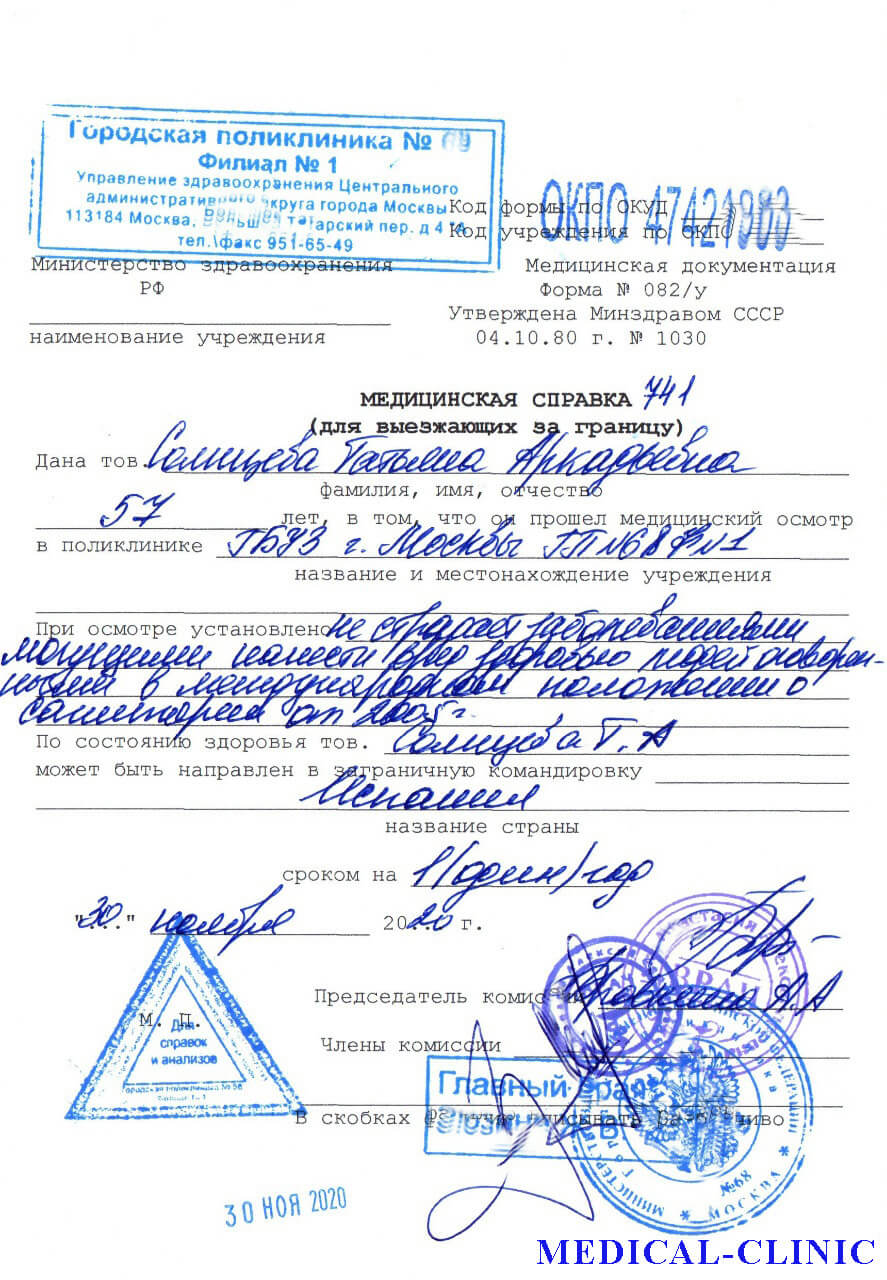 Городская поликлиника №
Филиал № 1
Управление здравоохранения Центрального
административного округа города Москвы
113184 Москва, тарский пер. д 4
тел.\факс 951-65-49
ОКПО 47421
Код формы по ОКУД
Код учреждения по ОКПО
Министерство здравоохранения
РФ
Медицинская документация
Форма № 082/у
Утверждена Минздравом СССР
04.10.80 г. № 1030
наименование учреждения
МЕДИЦИНСКАЯ СПРАВКА 741
(для выезжающих за границу)
Дана тов. Солнцева Татьяна Аркадьевна
фамилия, имя, отчество
57 лет, в том, что он прошел медицинский осмотр
в поликлинике ГБУЗ г. Москвы ГП №68 Ф№1
название и местонахождение учреждения
При осмотре установлено не страдает заболеваниями
могущими нанести вред здоровью людей оговорен-
ными в международном положении о
санитарии от 2005 г.
По состоянию здоровья тов. Солнцева Т. А
может быть направлен в заграничную командировку
Испания
название страны
сроком на 1 (один) год
"30" ноября 2020 г.
Председатель комиссии А.А
ВРАЧ
М. П.
Для
справок
и анализов
Члены комиссии
Главный врач
В скобках вписывать
№68
МОСКВА
30 НОЯ 2020
MEDICAL-CLINIC